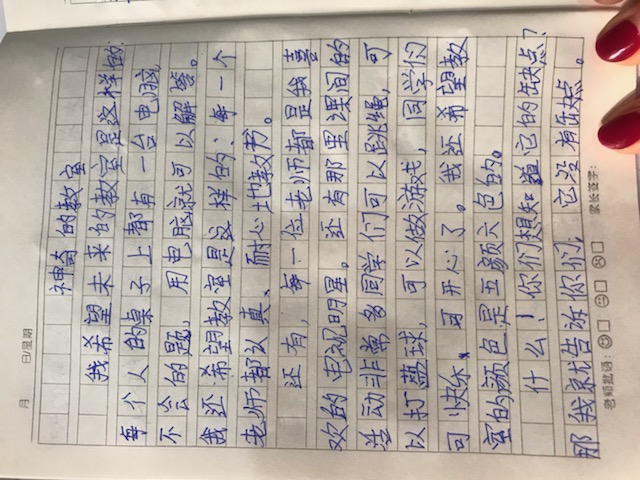 月 日/星期
神奇的教室
我希望未来的教室是这样的:
每个人的桌子上都有一台电脑,
不会的题,用电脑就可以解答。
我还希望教室是这样的:每一个
老师都认真、耐心地教书。
还有,每一位老师都是我喜
欢的电视明星。还有那里课间的
活动非常多同学们可以跳绳,可
以打蓝球,可以做游戏,同学们
可快乐、可开心了。我还希望教
室的颜色是五颜六色的。
什么!你们想知道它的缺点?
那我就告诉你们,它没有缺点。
老师批语: 家长签字: